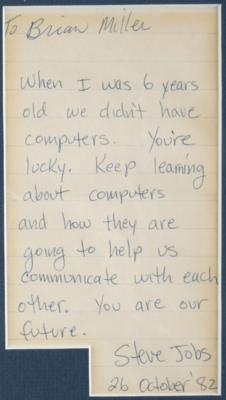 To Brian Miller
When I was 6 years
old we didn't have
computers. You're
lucky. Keep learning
about computers
and how they are
going to help us
communicate with each
other. You are our
future.
Steve Jobs
26 October '82